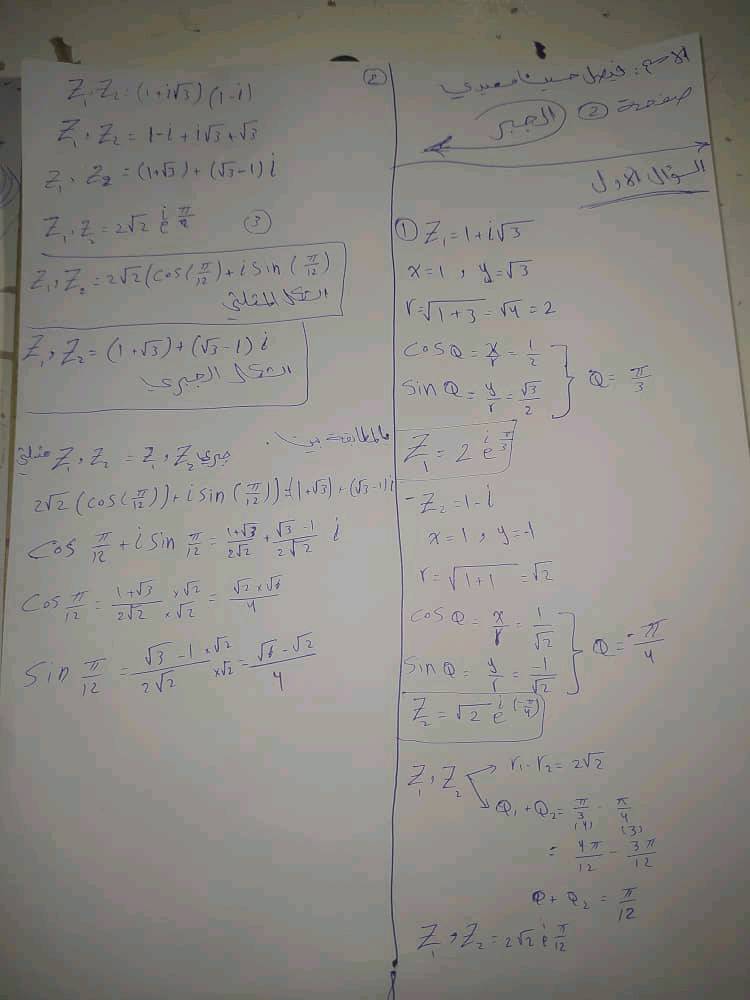 الاسم: فيصل حسين سعيدي
صفحة ②
الجبر
السؤال الاول
① Z₁ = 1 + i√3
x = 1 , y = √3
r = √(1+3) = √4 = 2
cos Q = x/r = 1/2
sin Q = y/r = √3/2
Q = π/3
Z₁ = 2 e^(i π/3)
- Z₂ = 1 - i
x = 1 , y = -1
r = √(1+1) = √2
cos Q = x/r = 1/√2
sin Q = y/r = -1/√2
Q = -π/4
Z₂ = √2 e^(i(-π/4))
Z₁ , Z₂
r₁ . r₂ = 2√2
Q₁ + Q₂ = π/3 - π/4
(4) (3)
= 4π/12 - 3π/12
Q + Q₂ = π/12
Z₁ , Z₂ = 2√2 e^(i π/12)
②
Z₁ . Z₂ = (1 + i√3) (1 - i)
Z₁ . Z₂ = 1 - i + i√3 + √3
Z₁ . Z₂ = (1+√3) + (√3-1) i
③
Z₁ , Z₂ = 2√2 (cos(π/12) + i sin(π/12)
الشكل المثلثي
Z₁ , Z₂ = (1+√3) + (√3-1) i
الشكل الجبري
بالمطابقة بين .
مثلثي Z₁ , Z₂ = Z₁ , Z₂ جبري
2√2 (cos(π/12)) + i sin(π/12)) = (1+√3) + (√3-1) i
cos π/12 + i sin π/12 = (1+√3)/(2√2) + (√3-1)/(2√2) i
cos π/12 = (1+√3)/(2√2) ×√2/×√2 = (√2 × √6)/4
sin π/12 = (√3-1)/(2√2) ×√2/×√2 = (√6-√2)/4